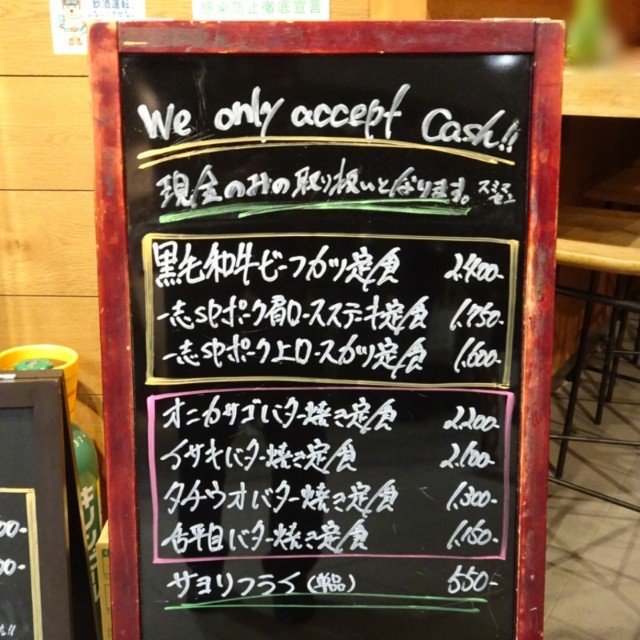 飲酒運転
感染防止徹底宣言
We only accept Cash!!
現金のみの取り扱いとなります。スミマセン
黒毛和牛ビーフカツ定食 2.400-
一志SPポーク肩ロースステーキ定食 1.750-
一志SPポーク上ロースカツ定食 1.600-
オニカサゴバター焼き定食 2.200-
イサキバター焼き定食 2.100-
タチウオバター焼き定食 1.300-
舌平目バター焼き定食 1.150-
サヨリフライ(単品) 550-
キリンビ